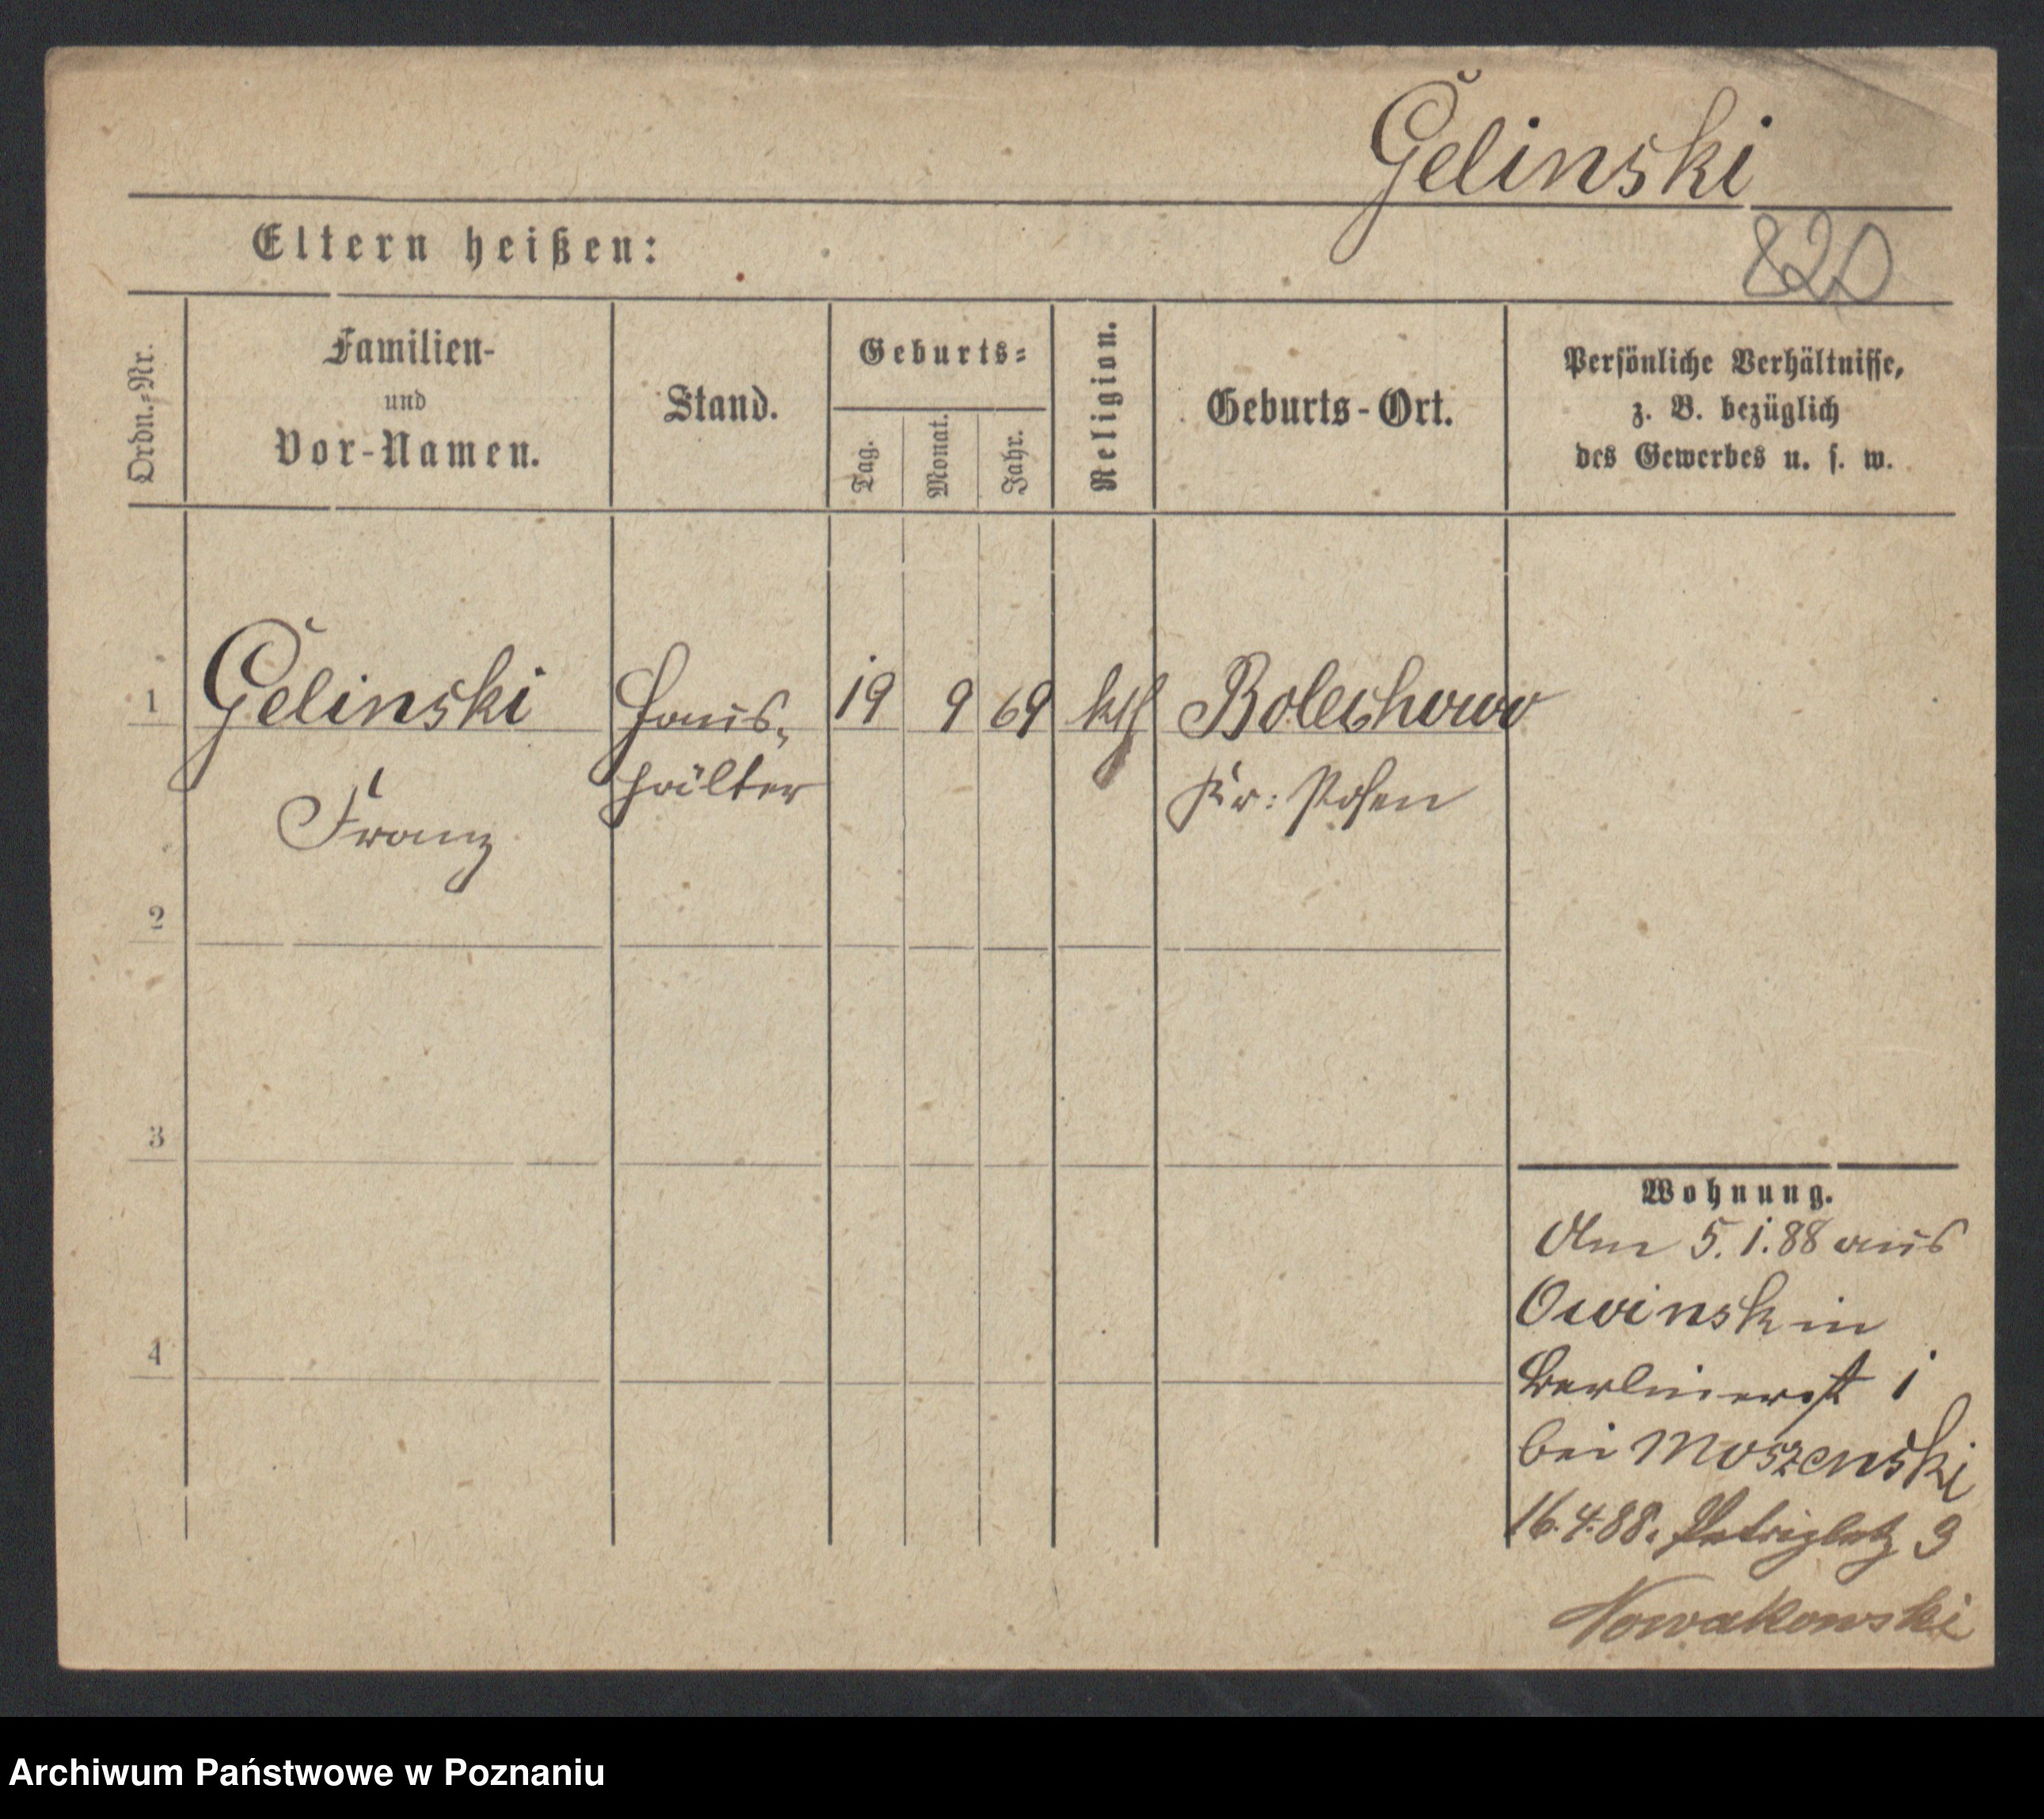 Gelinski
820
Eltern heißen:
Ordn.-Nr.
Familien-
und
Vor-Namen.
Stand.
Geburts-
Tag.
Monat.
Jahr.
Religion.
Geburts-Ort.
Persönliche Verhältnisse,
z. B. bezüglich
des Gewerbes u. s. w.
1 Gelinski Haus- 19 9 69 kth Bolechowo
Franz hälter Kr: Posen
2
3
4
Wohnung.
Am 5.1.88 aus
Owinsk in
Berlinerst 1
bei Moszenski
16.4.88. Petriplatz 3
Nowakowski
Archiwum Państwowe w Poznaniu